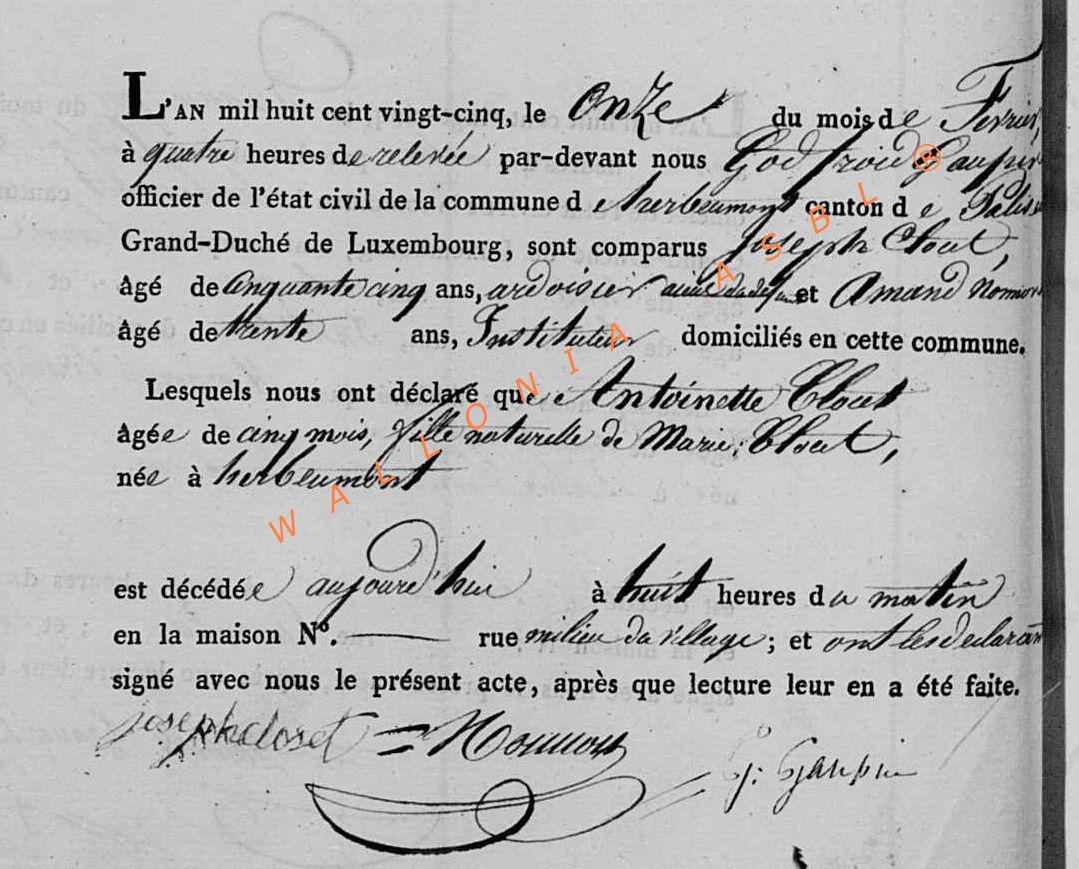 L'AN mil huit cent vingt-cinq, le onze du mois de Fevrier,
à quatre heures de relevée par-devant nous Godfroid Gaupin
officier de l'état civil de la commune d e herbeumont canton d e Palise
Grand-Duché de Luxembourg, sont comparus Joseph Clout,
âgé de cinquante cinq ans, ardoisier et Amand
âgé de trente ans, Instituteur domiciliés en cette commune.
Lesquels nous ont déclaré que Antoinette Clout
âgée de cinq mois, fille naturelle de Marie, Clout,
née à herbeumont
est décédée aujourd'hui à huit heures du matin
en la maison N°. — rue milieu du village ; et ont les declarant
signé avec nous le présent acte, après que lecture leur en a été faite.
joseph closet = 
G: Gaupin
WALLONIA ASBL ®